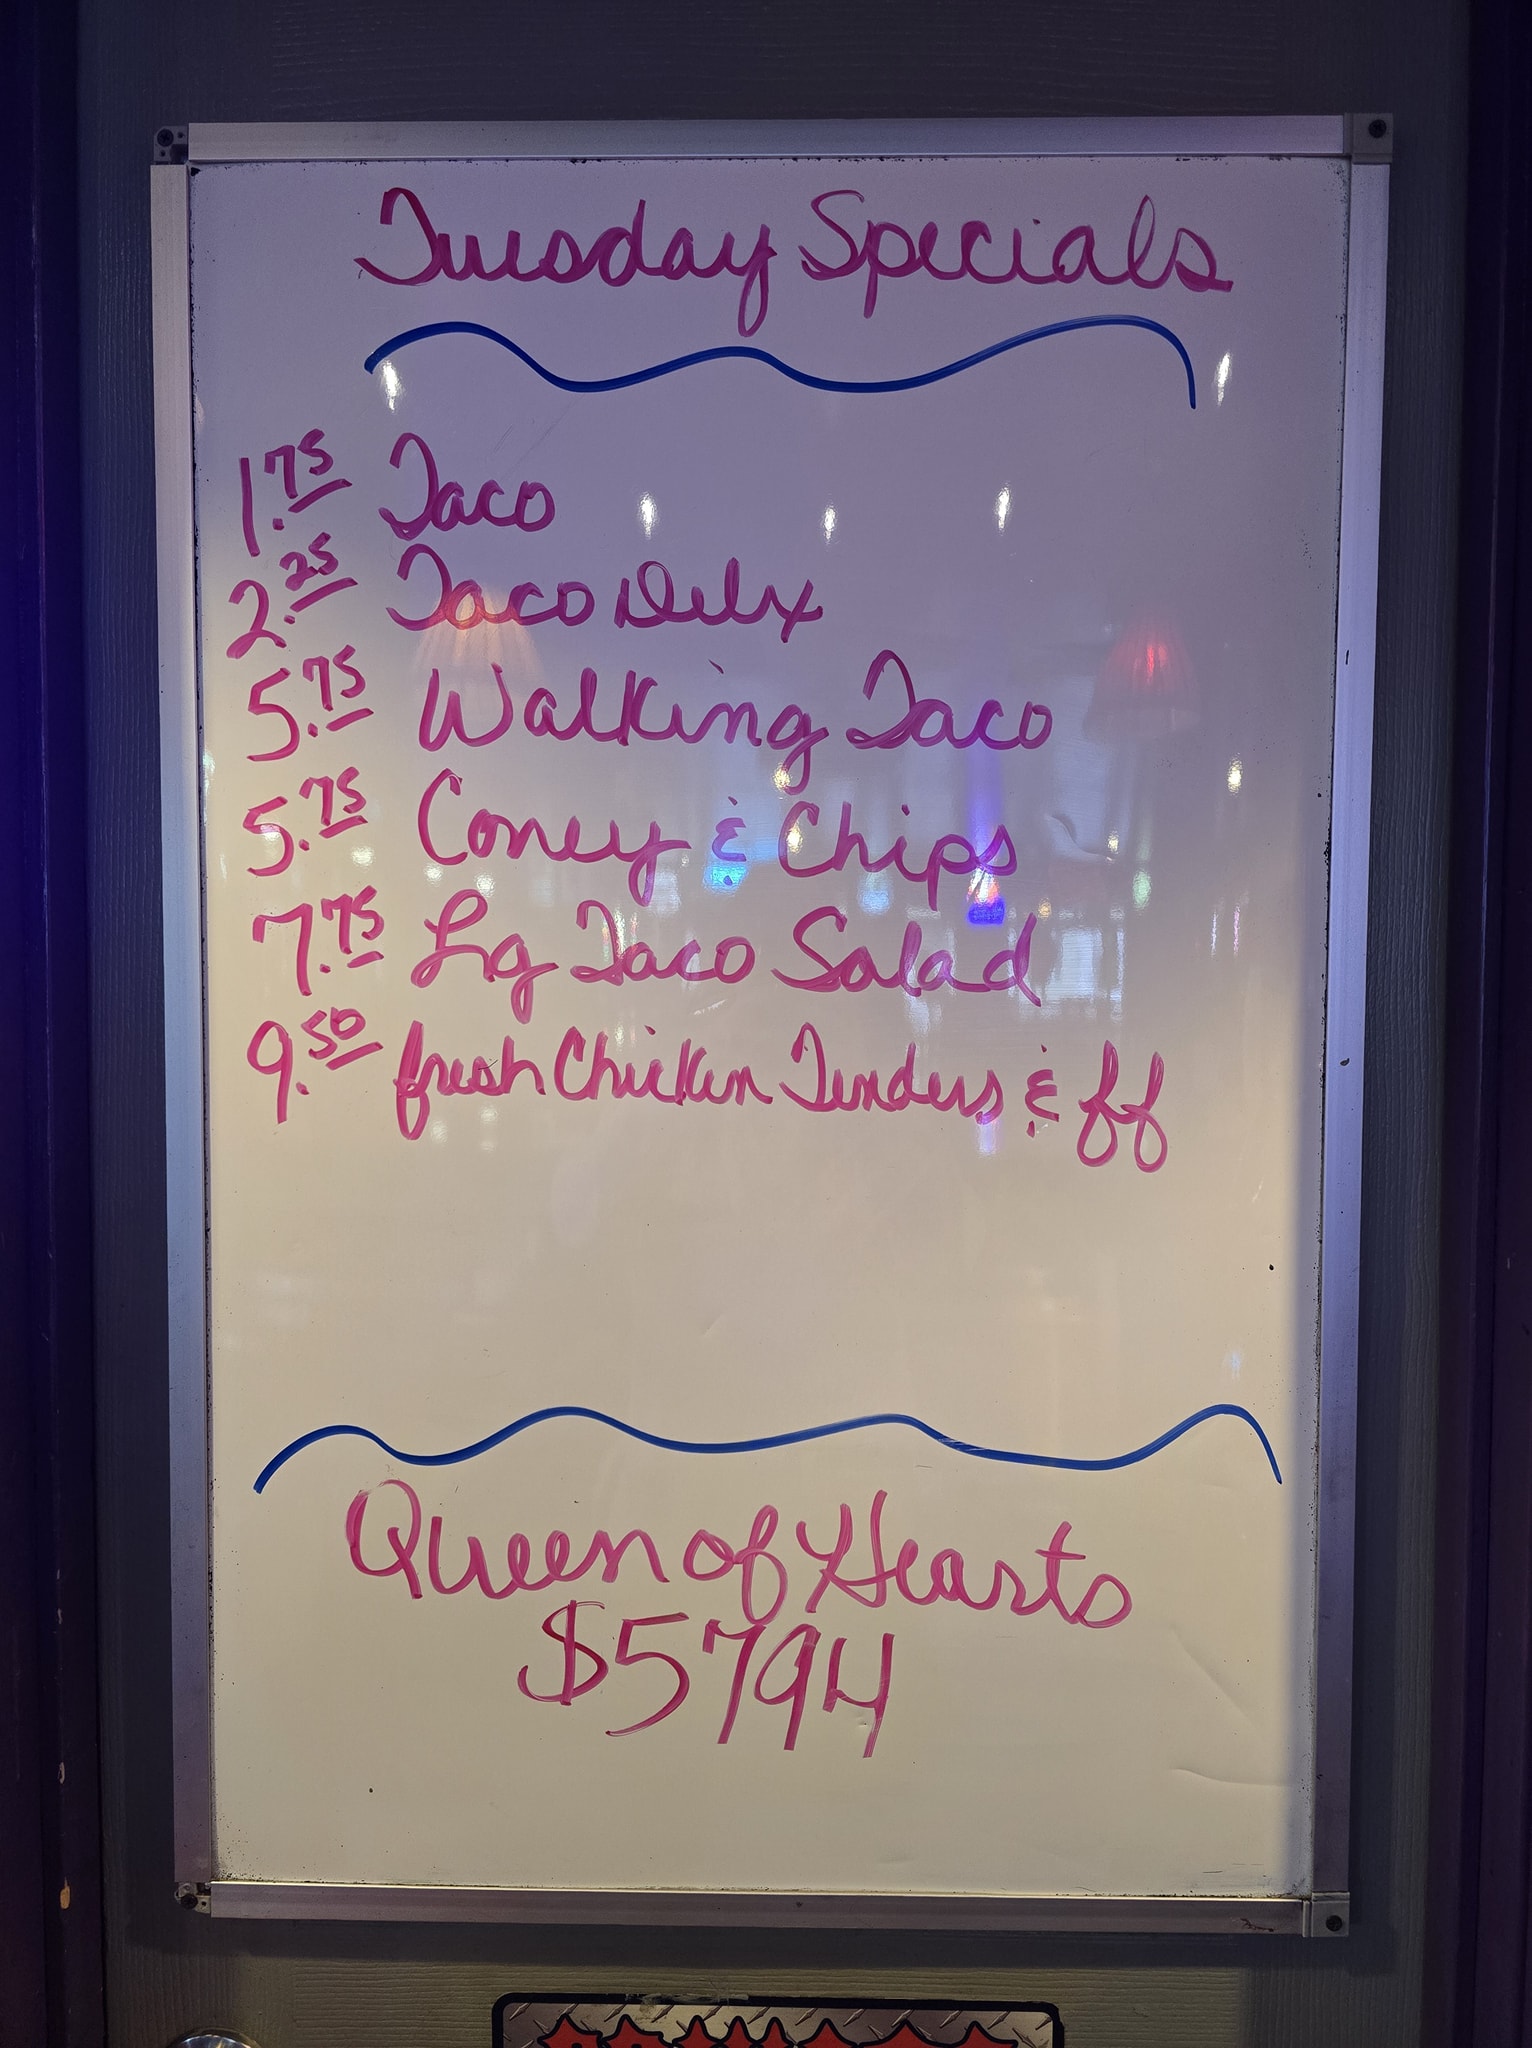 Tuesday Specials
1.75 Taco
2.25 Taco Delx
5.75 Walking Taco
5.75 Coney & Chips
7.75 Lg Taco Salad
9.50 fresh Chicken Tenders & ff
Queen of Hearts
$5794